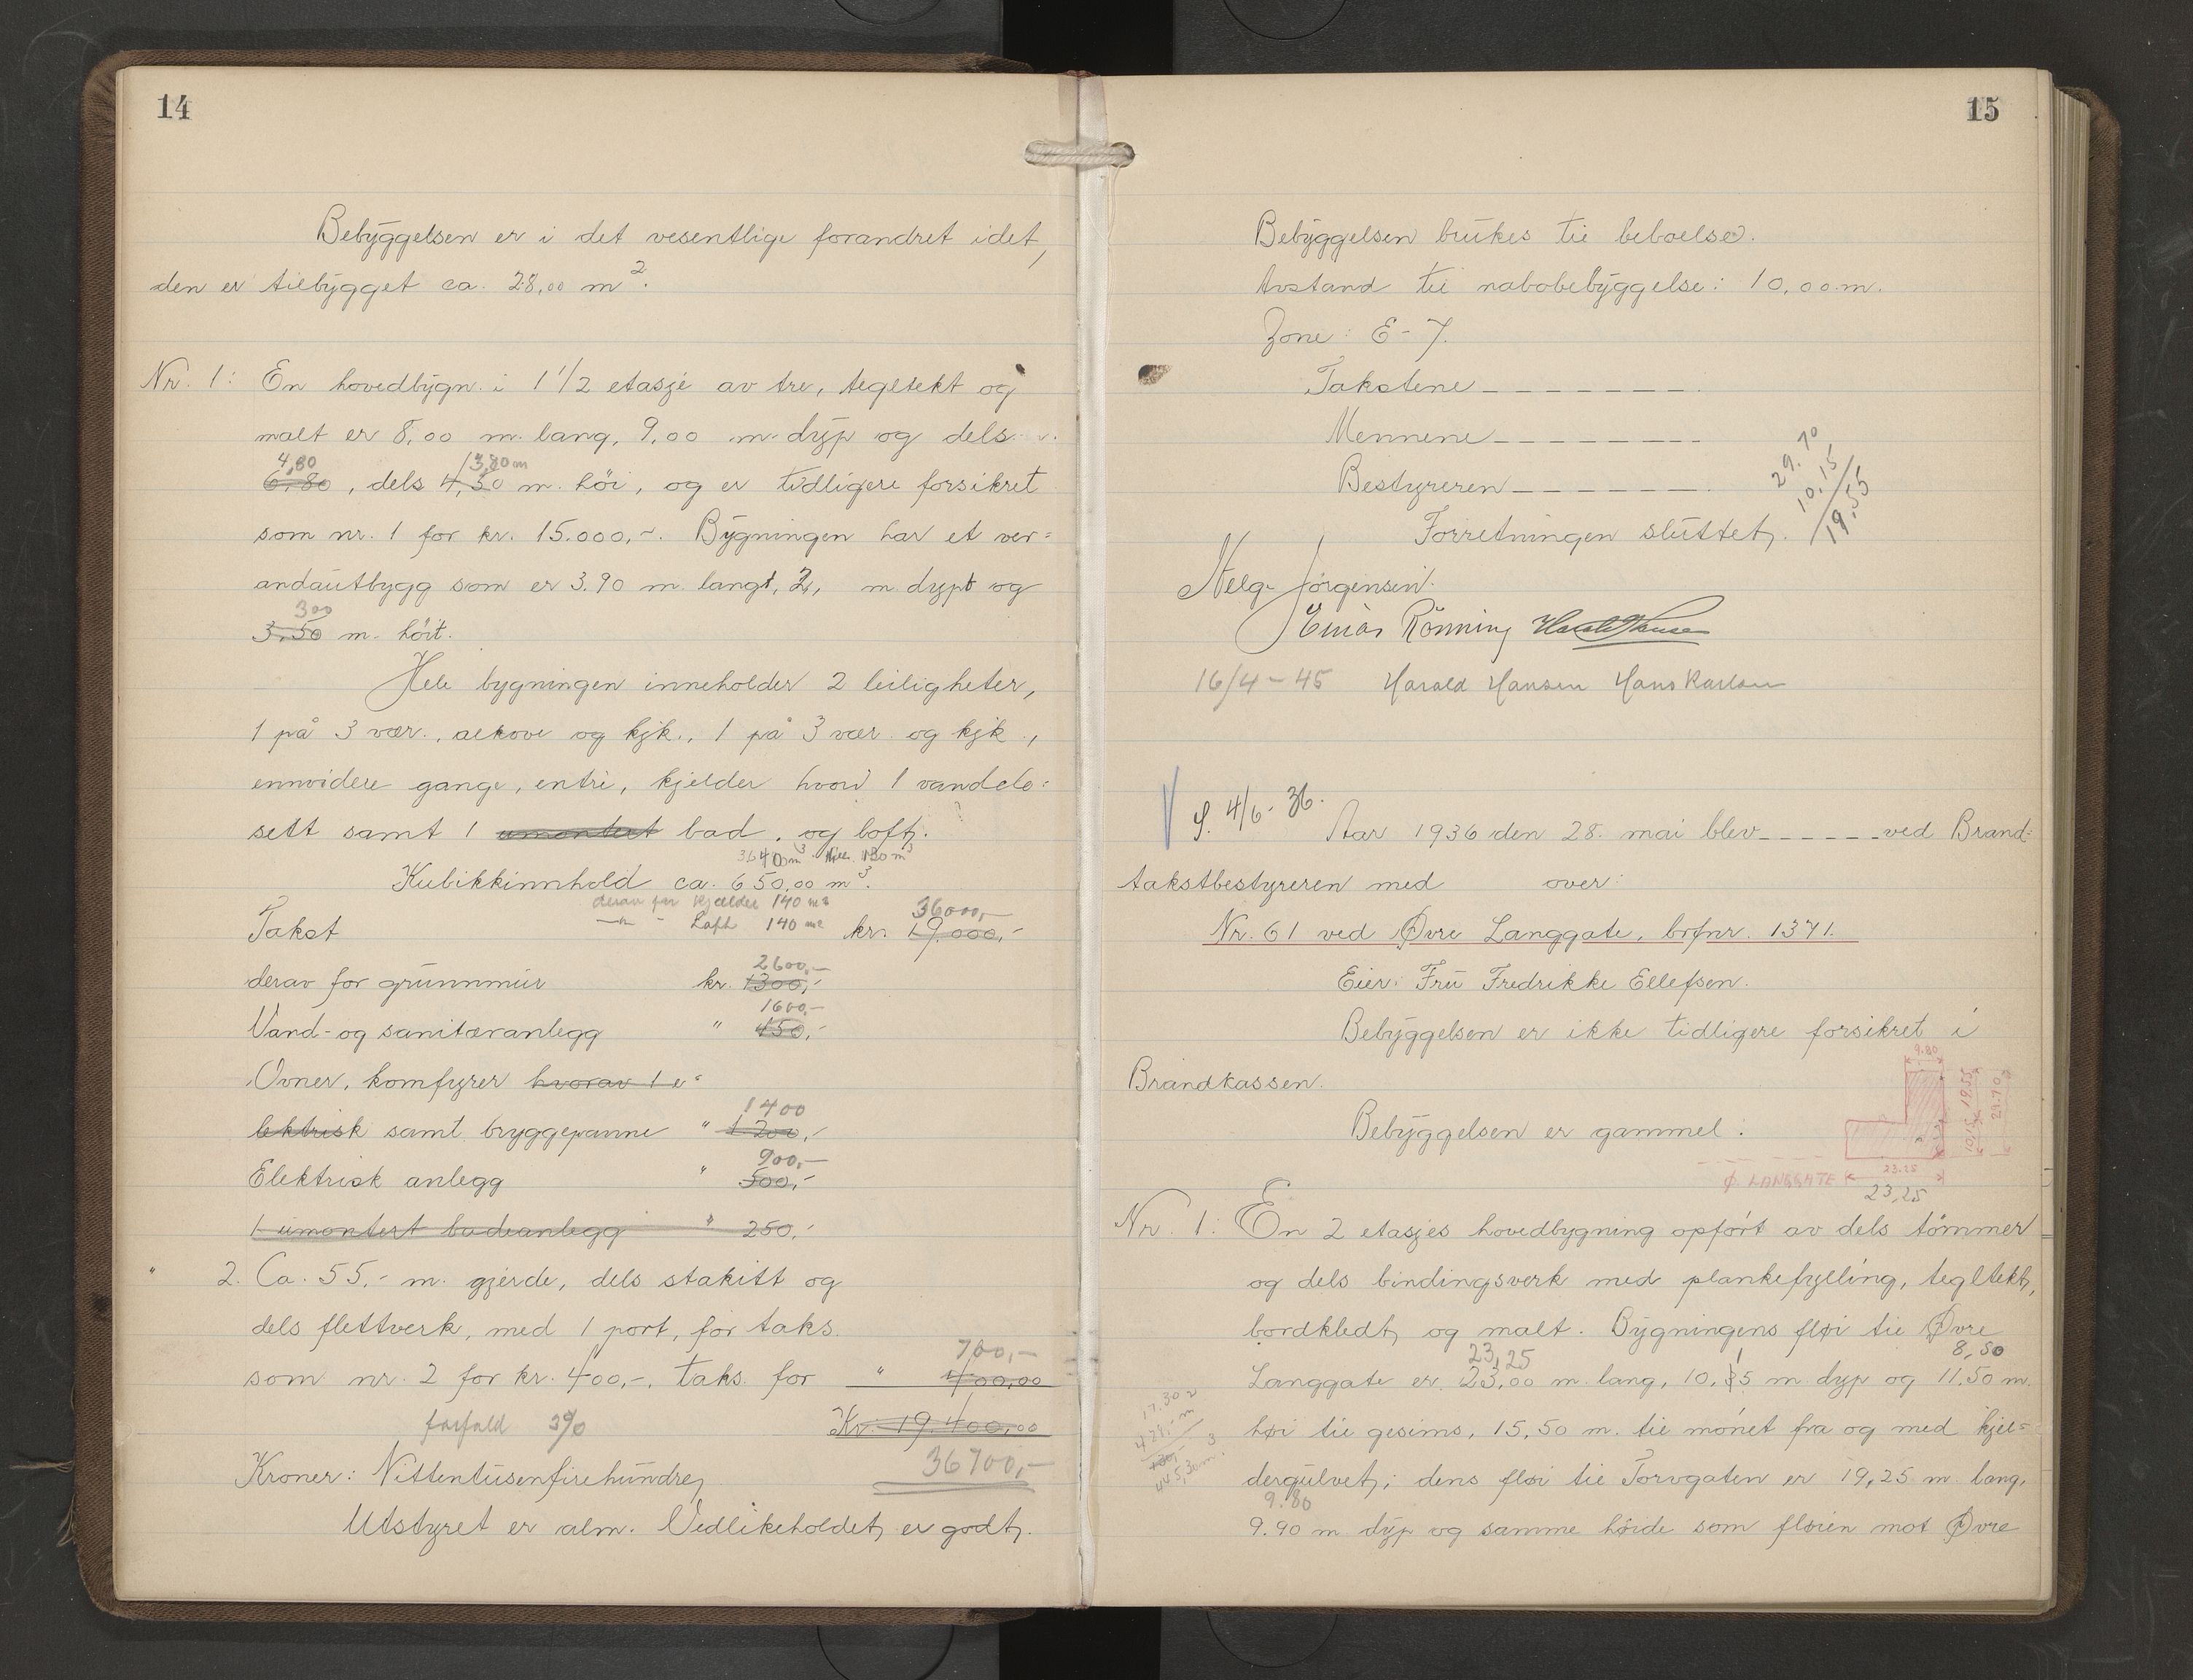 14
Bebyggelsen er i det vesentlige forandret idet,
den er tilbygget ca. 28,00 m².
Nr. 1: En hovedbygn. i 1 1/2 etasje av tre, tegltekt og
malt er 8,00 m. lang, 9,00 m. dyp og dels
4,80 3,80 m
6,80, dels 4,50 m. höi, og er tidligere forsikret
som nr. 1 for kr. 15.000,-. Bygningen har et ver=
andautbygg som er 3.90 m. langt, 2, m. dypt og
300
3,50 m. höit.
Hele bygningen inneholder 2 leiligheter,
1 på 3 vær., alkove og kjk., 1 på 3 vær. og kjk.,
ennvidere gange, entré, kjelder hvori 1 vandclo=
sett samt 1 umontert bad, og loft.
Kubikkinnhold ca. 650,00 m³.
derav for kjælder 140 m³
" - Loft 140 m³
36000,-
Takst kr. 19.000,-
2600,-
derav for grunnmur kr. 1300,-
1600,-
Vand- og sanitæranlegg " 450,-
Ovner, komfyrer hvorav 1 e=
1400
lektrisk samt bryggepanne " 1200,-
900,-
Elektrisk anlegg " 500,-
1 umontert badeanlegg " 250,-
" 2. Ca. 55,- m. gjerde, dels stakitt og
dels flettverk, med 1 port, før taks.
700,-
som nr. 2 for kr. 400,-, taks. for " 400,00
forfald 3% Kr. 19.400,00
Kroner: Nittentusenfirehundre, 36700,-
Utstyret er alm. Vedlikeholdet er godt.
15
Bebyggelsen brukes til beboelse.
Avstand til nabobebyggelse: 10,00 m.
Zone: E-7.
Takstene - - - - - - -
Mennene - - - - - - -
Bestyreren - - - - - - -
29.70
10,15
19,55
Forretningen sluttet.
Helg. Jörgensen.
Einar Rönning Harald Hansen
16/4-45 Harald Hansen Hans Karlsen
S. 4/6-36.
Aar 1936 den 28. mai blev - - - - - ved Brand=
takstbestyreren med over:
Nr. 61 ved Øvre Langgate, brfnr. 1371.
Eier: Fru Fredrikke Ellefsen.
Bebyggelsen er ikke tidligere forsikret i
Brandkassen.
9.80
19.55
10,15
29.70
Bebyggelsen er gammel:
23.25
Ø. LANGGATE
23,25
Nr. 1: En 2 etasjes hovedbygning opført av dels tömmer
og dels bindingsverk med plankefylling, tegltekt,
bordkledt og malt. Bygningens fløi til Øvre
23,25 1 8,50
Langgate er 23,00 m. lang, 10,35 m. dyp og 11,50 m.
høi til gesims, 15,50 m. til mönet fra og med kjel=
dergulvet; dens fløi til Torvgaten er 19,25 m. lang,
9.80
9.90 m. dyp og samme høide som fløien mot Øvre